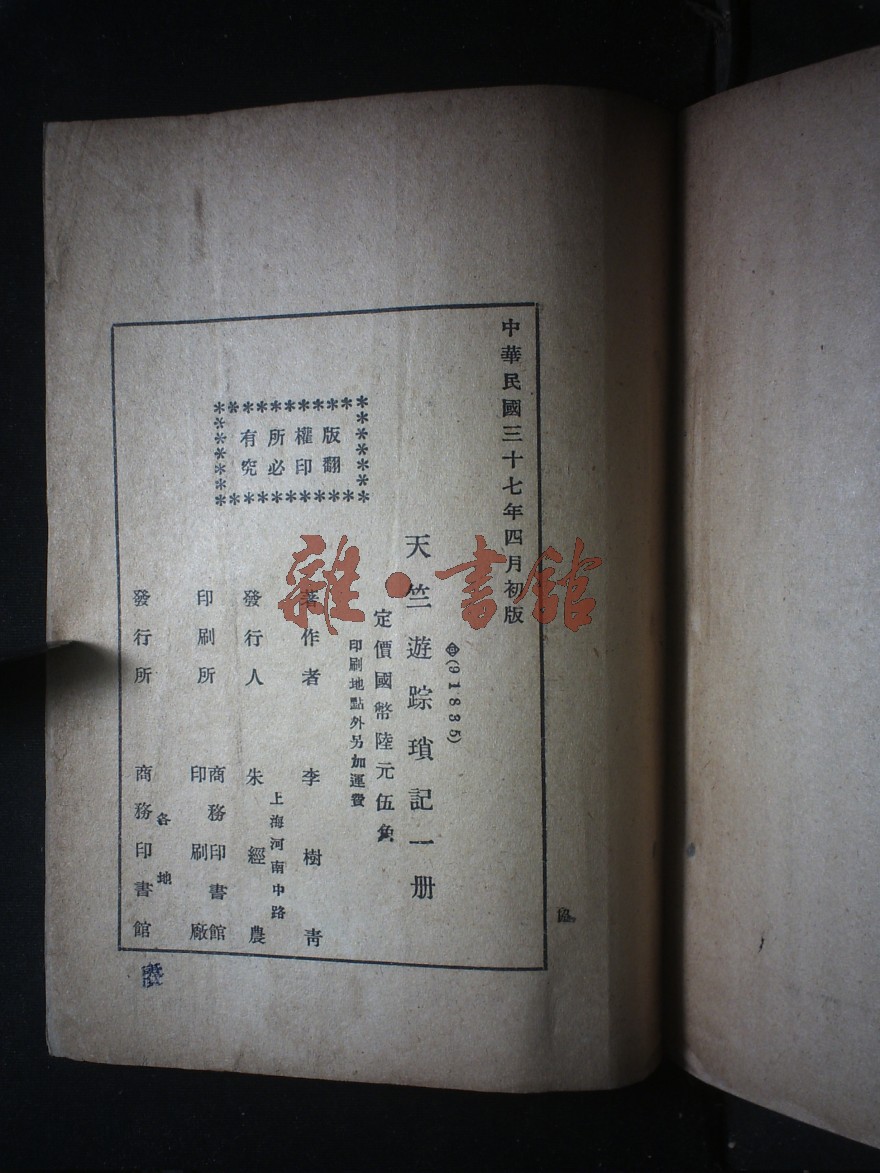 中華民國三十七年四月初版
(91835)
天竺遊踪瑣記一册
定價國幣陸元伍角
印刷地點外另加運費
版權所有
翻印必究
著作者 李樹青
上海河南中路
發行人 朱經農
印刷所 商務印書館
印刷廠
各地
發行所 商務印書館
雜·書館